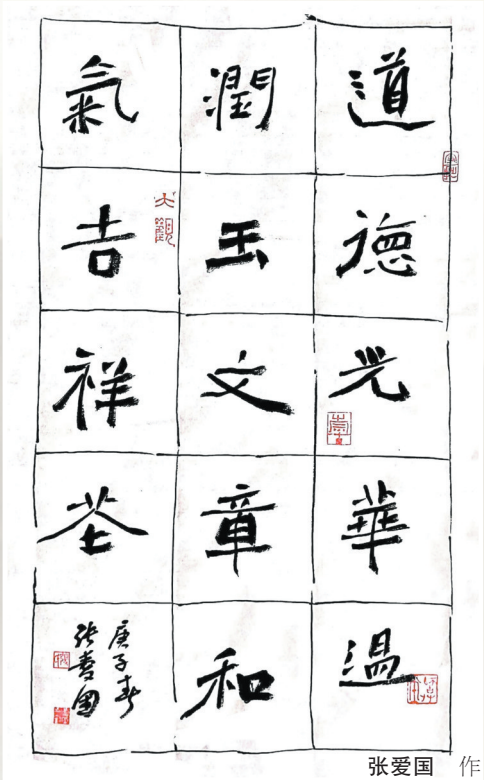 道德光華温
潤玉文章和
氣吉祥花
庚子春
張愛國
张爱国 作